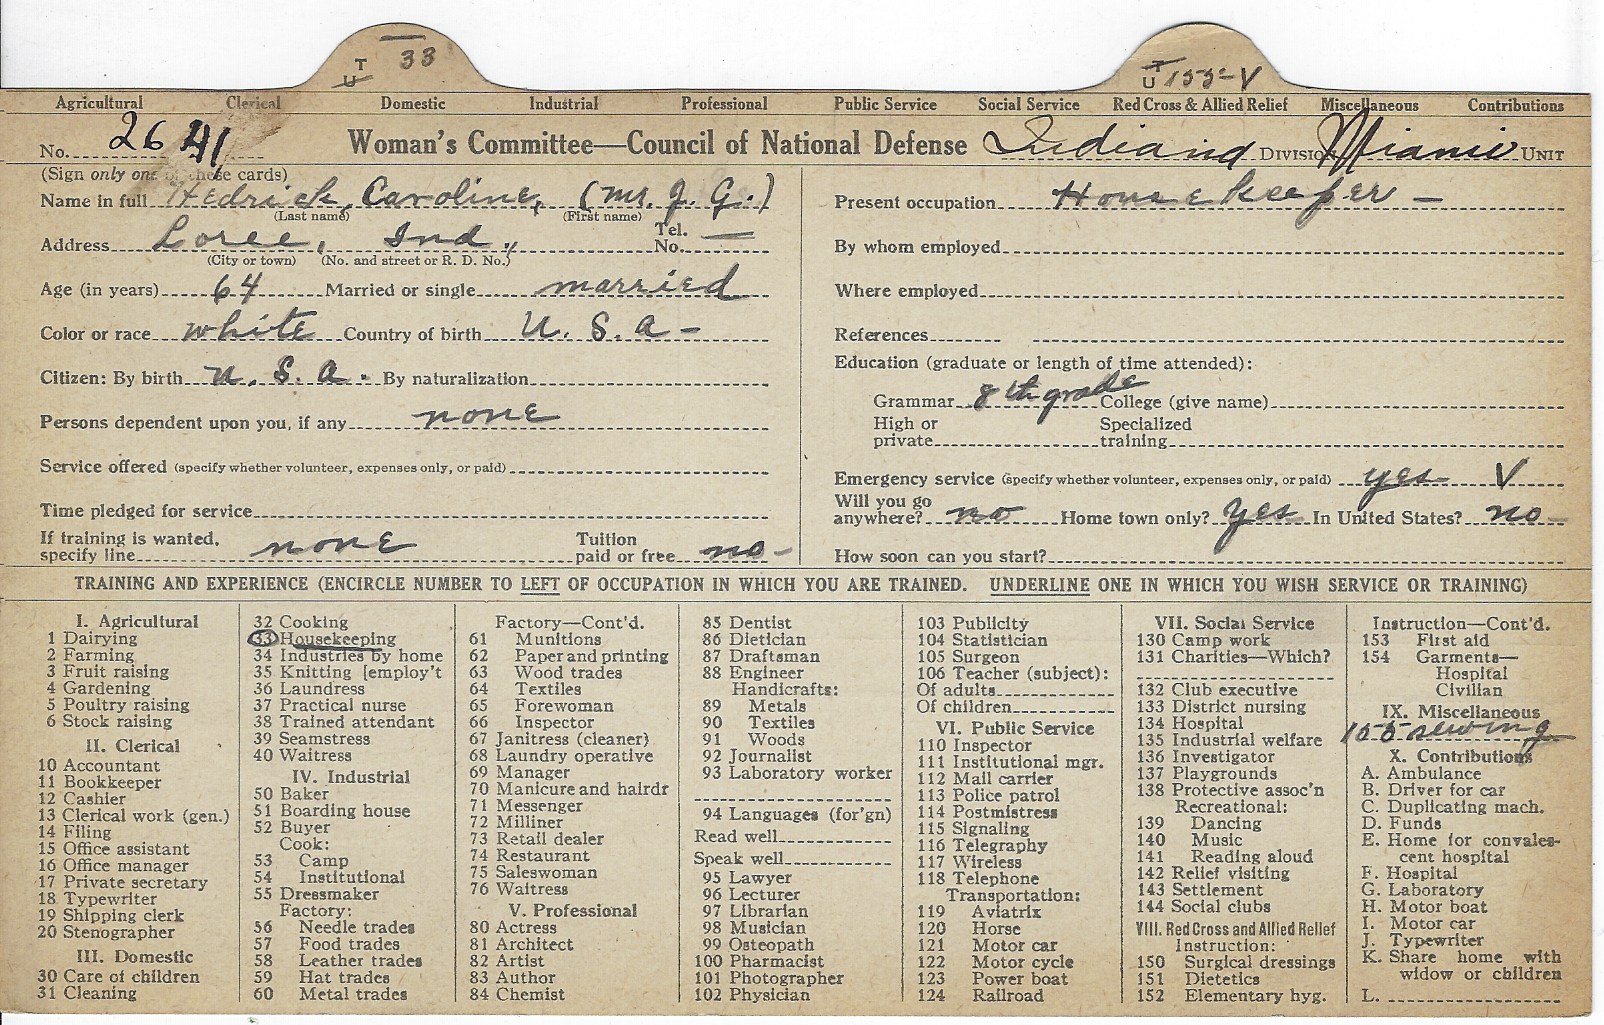 T
U 33
T
U 155-V
Agricultural Clerical Domestic Industrial Professional Public Service Social Service Red Cross & Allied Relief Miscellaneous Contributions
No. 2641 Woman's Committee—Council of National Defense Indiana DIVISION Miami UNIT
(Sign only one of these cards)
Name in full Hedrick, Caroline, (Mr. J. G.)
(Last name) (First name)
Address Loree, Ind., Tel. No. —
(City or town) (No. and street or R. D. No.)
Age (in years) 64 Married or single married
Color or race white Country of birth U. S. a -
Citizen: By birth u. S. a. By naturalization
Persons dependent upon you, if any none
Service offered (specify whether volunteer, expenses only, or paid)
Time pledged for service
If training is wanted, specify line none Tuition paid or free no -
Present occupation Housekeeper -
By whom employed
Where employed
References
Education (graduate or length of time attended):
Grammar 8th grade College (give name)
High or private Specialized training
Emergency service (specify whether volunteer, expenses only, or paid) yes V
Will you go anywhere? no Home town only? yes In United States? no
How soon can you start?
TRAINING AND EXPERIENCE (ENCIRCLE NUMBER TO LEFT OF OCCUPATION IN WHICH YOU ARE TRAINED. UNDERLINE ONE IN WHICH YOU WISH SERVICE OR TRAINING)
I. Agricultural
1 Dairying
2 Farming
3 Fruit raising
4 Gardening
5 Poultry raising
6 Stock raising
II. Clerical
10 Accountant
11 Bookkeeper
12 Cashier
13 Clerical work (gen.)
14 Filing
15 Office assistant
16 Office manager
17 Private secretary
18 Typewriter
19 Shipping clerk
20 Stenographer
III. Domestic
30 Care of children
31 Cleaning
32 Cooking
33 Housekeeping
34 Industries by home
35 Knitting [employ't
36 Laundress
37 Practical nurse
38 Trained attendant
39 Seamstress
40 Waitress
IV. Industrial
50 Baker
51 Boarding house
52 Buyer
Cook:
53 Camp
54 Institutional
55 Dressmaker
Factory:
56 Needle trades
57 Food trades
58 Leather trades
59 Hat trades
60 Metal trades
Factory—Cont'd.
61 Munitions
62 Paper and printing
63 Wood trades
64 Textiles
65 Forewoman
66 Inspector
67 Janitress (cleaner)
68 Laundry operative
69 Manager
70 Manicure and hairdr
71 Messenger
72 Milliner
73 Retail dealer
74 Restaurant
75 Saleswoman
76 Waitress
V. Professional
80 Actress
81 Architect
82 Artist
83 Author
84 Chemist
85 Dentist
86 Dietician
87 Draftsman
88 Engineer
Handicrafts:
89 Metals
90 Textiles
91 Woods
92 Journalist
93 Laboratory worker
94 Languages (for'gn)
Read well
Speak well
95 Lawyer
96 Lecturer
97 Librarian
98 Musician
99 Osteopath
100 Pharmacist
101 Photographer
102 Physician
103 Publicity
104 Statistician
105 Surgeon
106 Teacher (subject):
Of adults
Of children
VI. Public Service
110 Inspector
111 Institutional mgr.
112 Mail carrier
113 Police patrol
114 Postmistress
115 Signaling
116 Telegraphy
117 Wireless
118 Telephone
Transportation:
119 Aviatrix
120 Horse
121 Motor car
122 Motor cycle
123 Power boat
124 Railroad
VII. Social Service
130 Camp work
131 Charities—Which?
132 Club executive
133 District nursing
134 Hospital
135 Industrial welfare
136 Investigator
137 Playgrounds
138 Protective assoc'n
Recreational:
139 Dancing
140 Music
141 Reading aloud
142 Relief visiting
143 Settlement
144 Social clubs
VIII. Red Cross and Allied Relief
Instruction:
150 Surgical dressings
151 Dietetics
152 Elementary hyg.
Instruction—Cont'd.
153 First aid
154 Garments—
Hospital
Civilian
IX. Miscellaneous
155 sewing
X. Contributions
A. Ambulance
B. Driver for car
C. Duplicating mach.
D. Funds
E. Home for convales-
cent hospital
F. Hospital
G. Laboratory
H. Motor boat
I. Motor car
J. Typewriter
K. Share home with
widow or children
L.